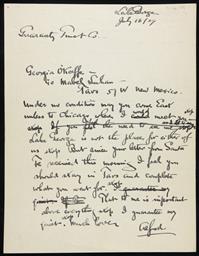 Lake George
July 16/29
Guaranty Trust Co.
Georgia O'Keeffe
c/o Mabel Luhan
Taos New Mexico.
Under no condition may you come East
unless to Chicago where I could meet you stop
If you feel the need to see me
Lake George is not the place for either of
us stop But since your letter from Santa
Fe received this morning I feel you
should stay in Taos and complete
what you went for stop
That to me is important
above everything stop I guarantee my
quiet. Much Love.
Alfred